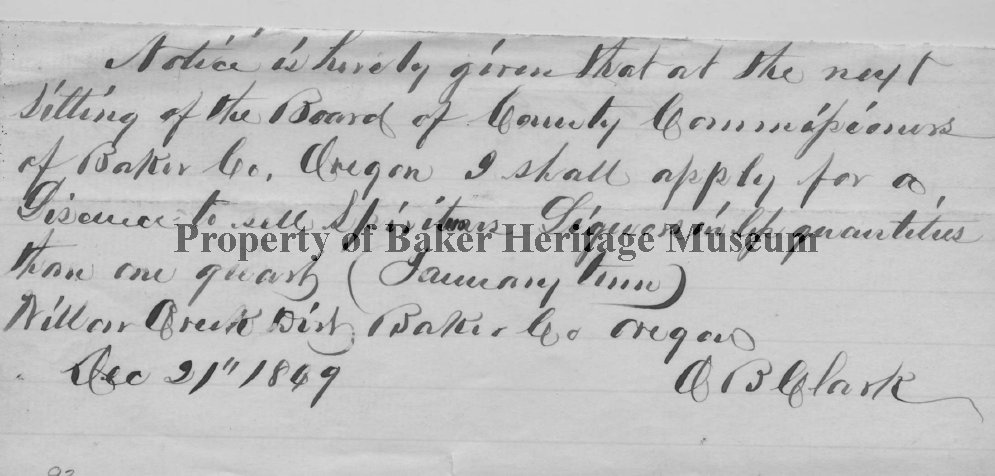 Notice is hereby given that at the next
sitting of the Board of County Commissioners
of Baker Co. Oregon I shall apply for a
Liscence to sell Spiritous Liquors in less quantities
Property of Baker Heritage Museum
than one quart (January term)
Willow Creek Dist, Baker Co Oregon
Dec 21" 1869
O B Clark